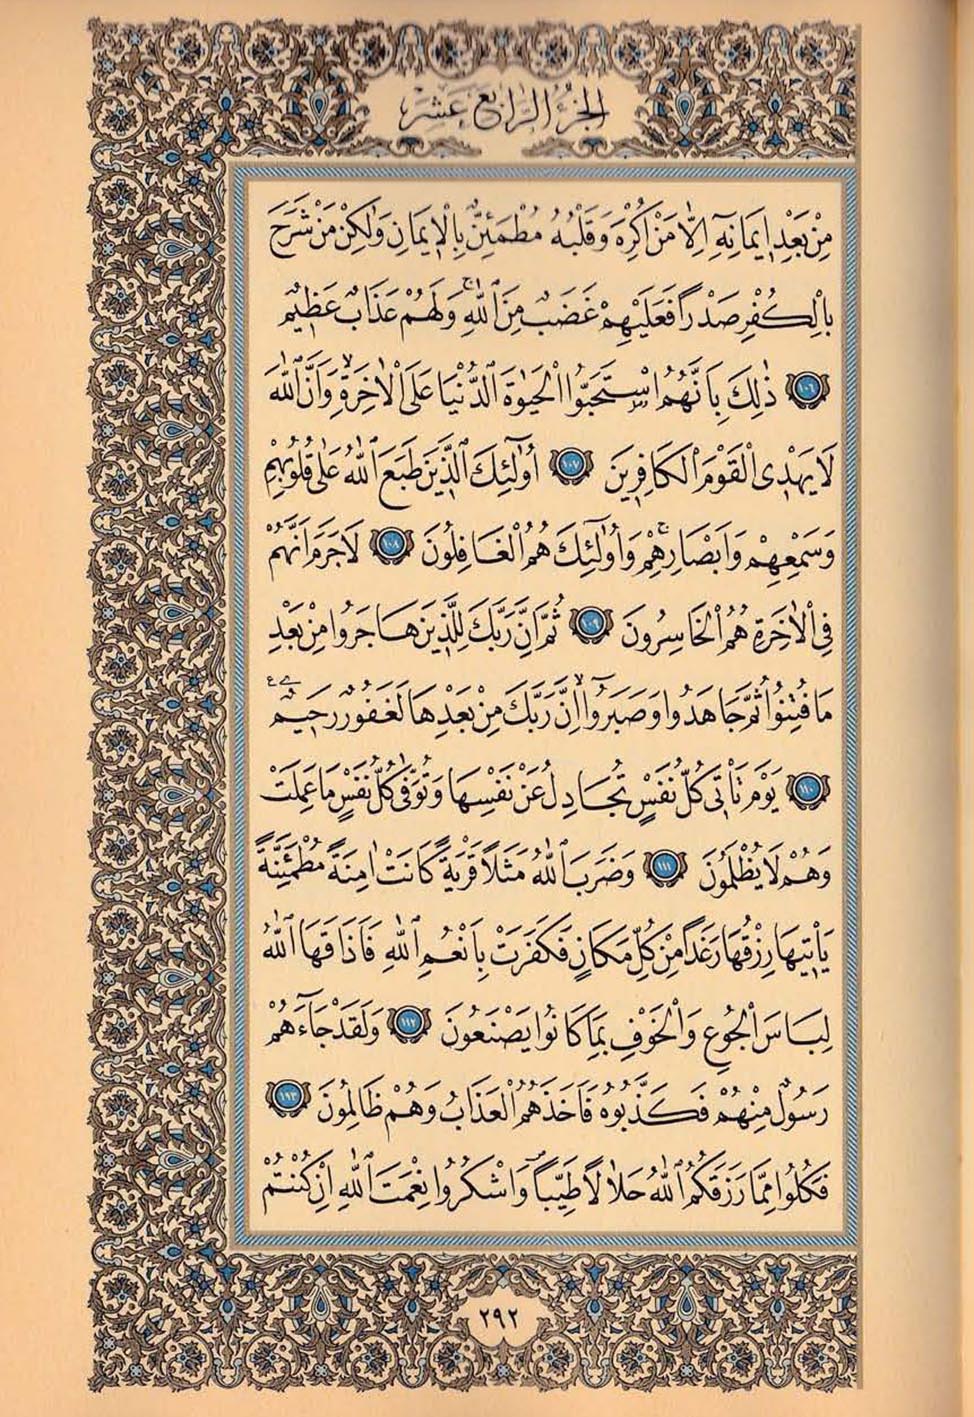 الجزء الرابع عشر
مِنْ بَعْدِ اِيمَانِهِ اِلَّا مَنْ اُكْرِهَ وَقَلْبُهُ مُطْمَئِنٌّ بِالْاِيمَانِ وَلٰكِنْ مَنْ شَرَحَ
بِالْكُفْرِ صَدْرًا فَعَلَيْهِمْ غَضَبٌ مِنَ ٱللّٰهِۚ وَلَهُمْ عَذَابٌ عَظِيمٌ
﴿١٠٦﴾ ذٰلِكَ بِاَنَّهُمُ اسْتَحَبُّوا الْحَيٰوةَ ٱلدُّنْيَا عَلَى الْاٰخِرَةِۙ وَاَنَّ ٱللّٰهَ
لَا يَهْدِى الْقَوْمَ الْكَافِرِينَ ﴿١٠٧﴾ اُولٰٓئِكَ ٱلَّذِينَ طَبَعَ ٱللّٰهُ عَلٰى قُلُوبِهِمْ
وَسَمْعِهِمْ وَاَبْصَارِهِمْۚ وَاُولٰٓئِكَ هُمُ الْغَافِلُونَ ﴿١٠٨﴾ لَا جَرَمَ اَنَّهُمْ
فِى الْاٰخِرَةِ هُمُ الْخَاسِرُونَ ﴿١٠٩﴾ ثُمَّ اِنَّ رَبَّكَ لِلَّذِينَ هَاجَرُوا مِنْ بَعْدِ
مَا فُتِنُوا ثُمَّ جَاهَدُوا وَصَبَرُٓواۙ اِنَّ رَبَّكَ مِنْ بَعْدِهَا لَغَفُورٌ رَحِيمٌ
﴿١١٠﴾ يَوْمَ تَاْتِى كُلُّ نَفْسٍ تُجَادِلُ عَنْ نَفْسِهَا وَتُوَفّٰى كُلُّ نَفْسٍ مَا عَمِلَتْ
وَهُمْ لَا يُظْلَمُونَ ﴿١١١﴾ وَضَرَبَ ٱللّٰهُ مَثَلًا قَرْيَةً كَانَتْ اٰمِنَةً مُطْمَئِنَّةً
يَاْتِيهَا رِزْقُهَا رَغَدًا مِنْ كُلِّ مَكَانٍ فَكَفَرَتْ بِاَنْعُمِ ٱللّٰهِ فَاَذَاقَهَا ٱللّٰهُ
لِبَاسَ الْجُوعِ وَالْخَوْفِ بِمَا كَانُوا يَصْنَعُونَ ﴿١١٢﴾ وَلَقَدْ جَٓاءَهُمْ
رَسُولٌ مِنْهُمْ فَكَذَّبُوهُ فَاَخَذَهُمُ الْعَذَابُ وَهُمْ ظَالِمُونَ ﴿١٩٣﴾
فَكُلُوا مِمَّا رَزَقَكُمُ ٱللّٰهُ حَلَالًا طَيِّبًاۖ وَاشْكُرُوا نِعْمَتَ ٱللّٰهِ اِنْ كُنْتُمْ
٢٩٢